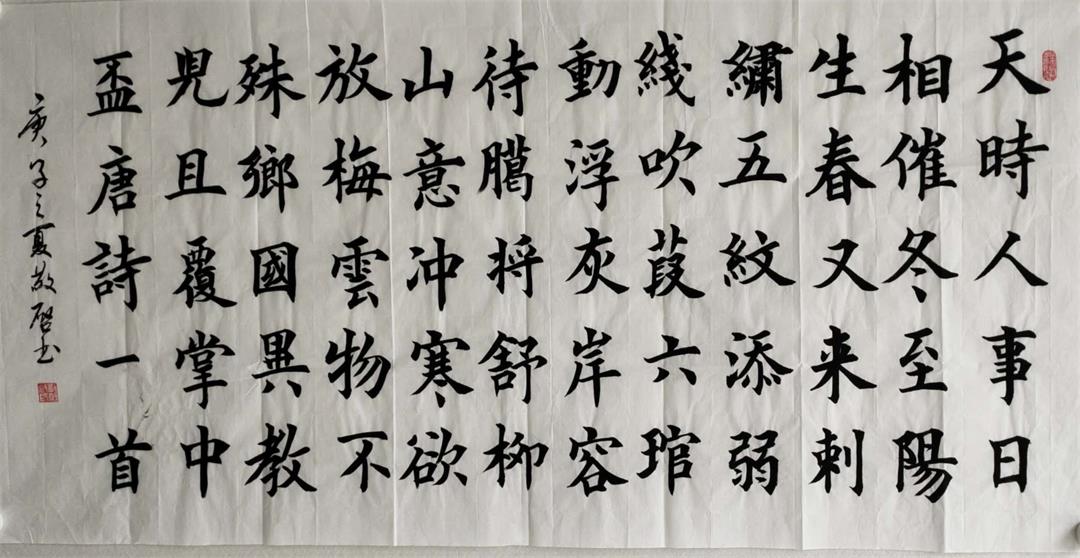 天時人事日
相催冬至陽
生春又来刺
繡五紋添弱
綫吹葭六琯
動浮灰岸容
待臈将舒柳
山意冲寒欲
放梅雲物不
殊鄉國異教
児且覆掌中
盃唐詩一首
庚子之夏敬啓书